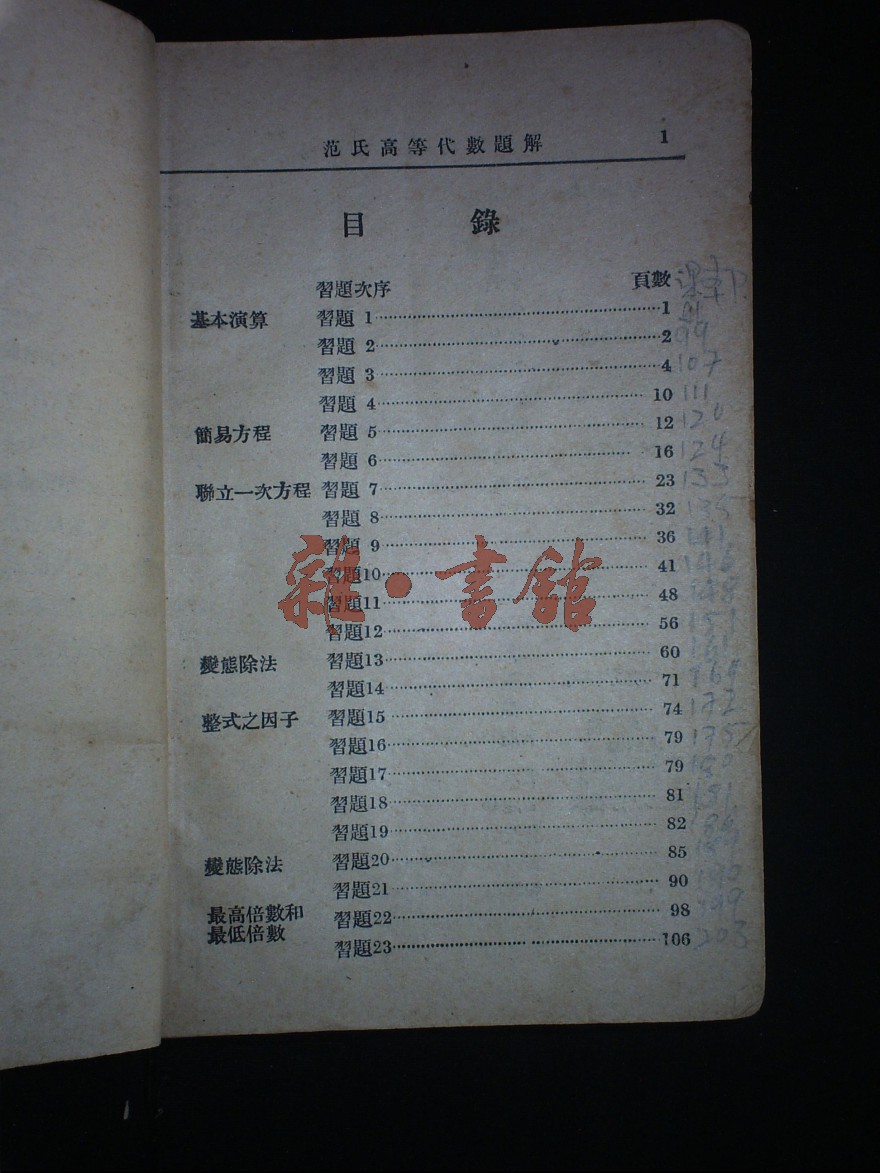 范氏高等代數題解 1
目錄
習題次序 頁數
基本演算 習題 1 1 99
習題 2 2 107
習題 3 4 111
習題 4 10 120
簡易方程 習題 5 12 124
習題 6 16 133
聯立一次方程 習題 7 23 135
習題 8 32 141
習題 9 36
習題10 41
習題11 48
習題12 56
變態除法 習題13 60
習題14 71
整式之因子 習題15 74 172
習題16 79 175
習題17 79 180
習題18 81 181
習題19 82
變態除法 習題20 85
習題21 90
最高倍數和最低倍數 習題22 98 199
習題23 106 203
雜·書館